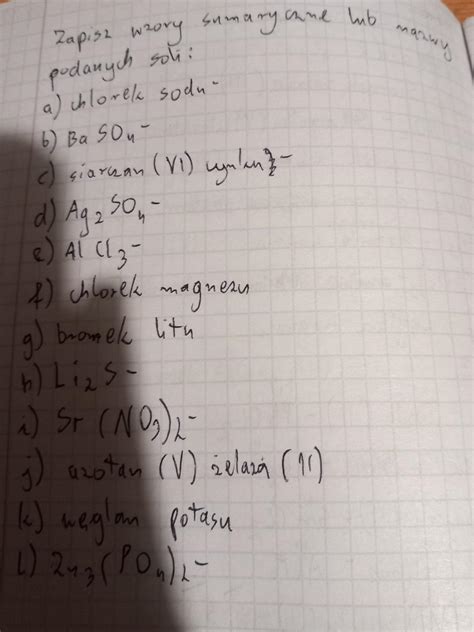 Zapisz wzory sumaryczne lub nazwy
podanych soli:
a) chlorek sodu -
b) BaSO4 -
c) siarczan (VI) cynku -
d) Ag2SO4 -
e) AlCl3 -
f) chlorek magnezu
g) bromek litu
h) Li2S -
i) Sr(NO3)2 -
j) azotan (V) żelaza (II)
k) węglan potasu
l) Zn3(PO4)2 -